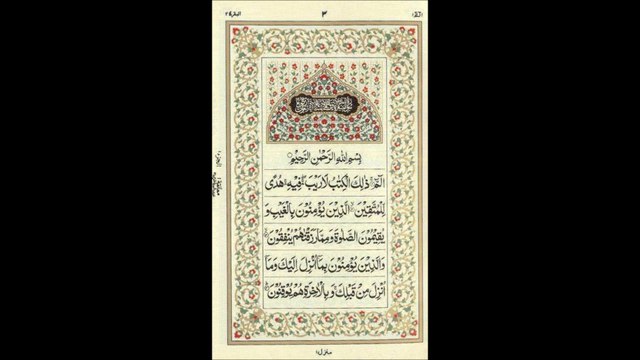 الٓمّٓ ١
٣
البقرة ٢
بِسْمِ اللهِ الرَّحْمٰنِ الرَّحِيْمِ
الٓمّٓ ذٰلِكَ الْكِتٰبُ لَا رَيْبَ فِيْهِ هُدًى
لِّلْمُتَّقِيْنَ الَّذِيْنَ يُؤْمِنُوْنَ بِالْغَيْبِ وَ
يُقِيْمُوْنَ الصَّلٰوةَ وَمِمَّا رَزَقْنٰهُمْ يُنْفِقُوْنَ
وَالَّذِيْنَ يُؤْمِنُوْنَ بِمَآ اُنْزِلَ اِلَيْكَ وَمَآ
اُنْزِلَ مِنْ قَبْلِكَ وَبِالْاٰخِرَةِ هُمْ يُوْقِنُوْنَ
منزل ١